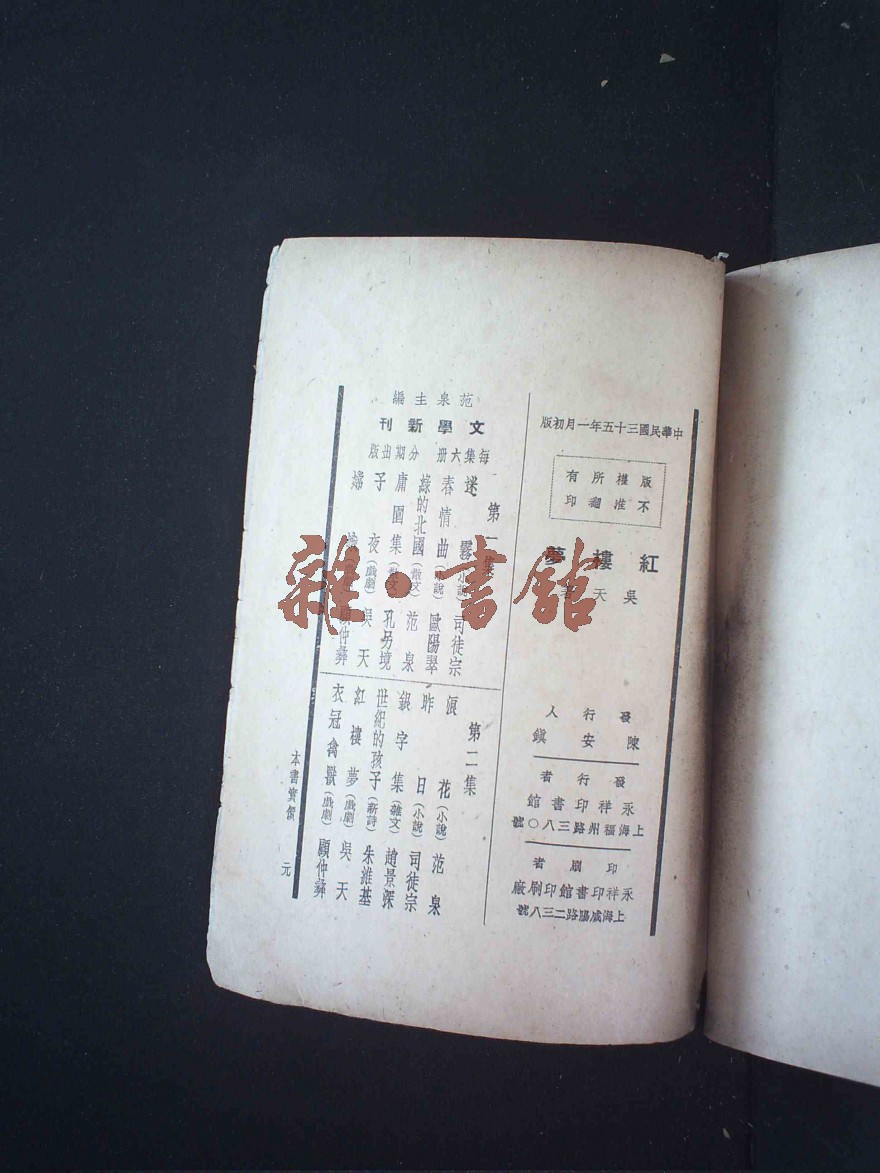 中華民國三十五年一月初版
版權所有
不准翻印
紅樓夢
吳天著
發行人
陳安鎮
發行者
永祥印書館
上海福州路三八〇號
印刷者
永祥印書館印刷廠
上海咸陽路二三八號
范泉主編
文學新刊
每集六册 分期出版
第一集
迷霧(小說) 司徒宗
春情曲(小說) 歐陽翠
綠的北國(散文) 范泉
庸園集(散文) 孔另境
子夜(戲劇) 吳天
嬸 顧仲彝
第二集
浪花(小說) 范泉
昨日(小說) 司徒宗
銀字集(雜文) 趙景深
世紀的孩子(新詩) 朱維基
紅樓夢(戲劇) 吳天
衣冠禽獸(戲劇) 顧仲彝
本書實價 元
雜·書館